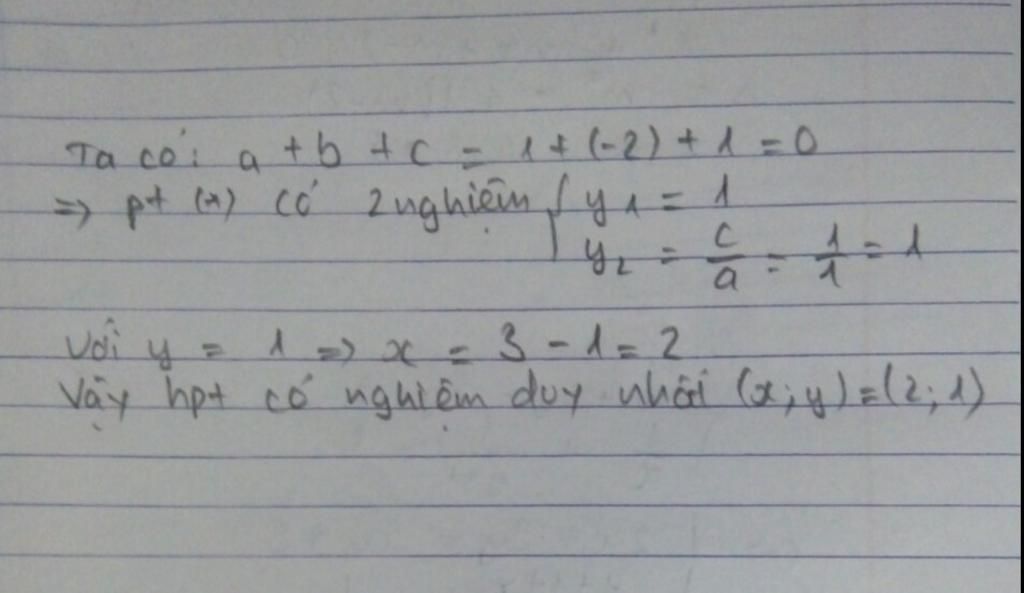 Ta có: a + b + c = 1 + (-2) + 1 = 0
=> pt (*) có 2 nghiệm { y1 = 1
y2 = c/a = 1/1 = 1
Với y = 1 => x = 3 - 1 = 2
Vậy hpt có nghiệm duy nhất (x; y) = (2; 1)